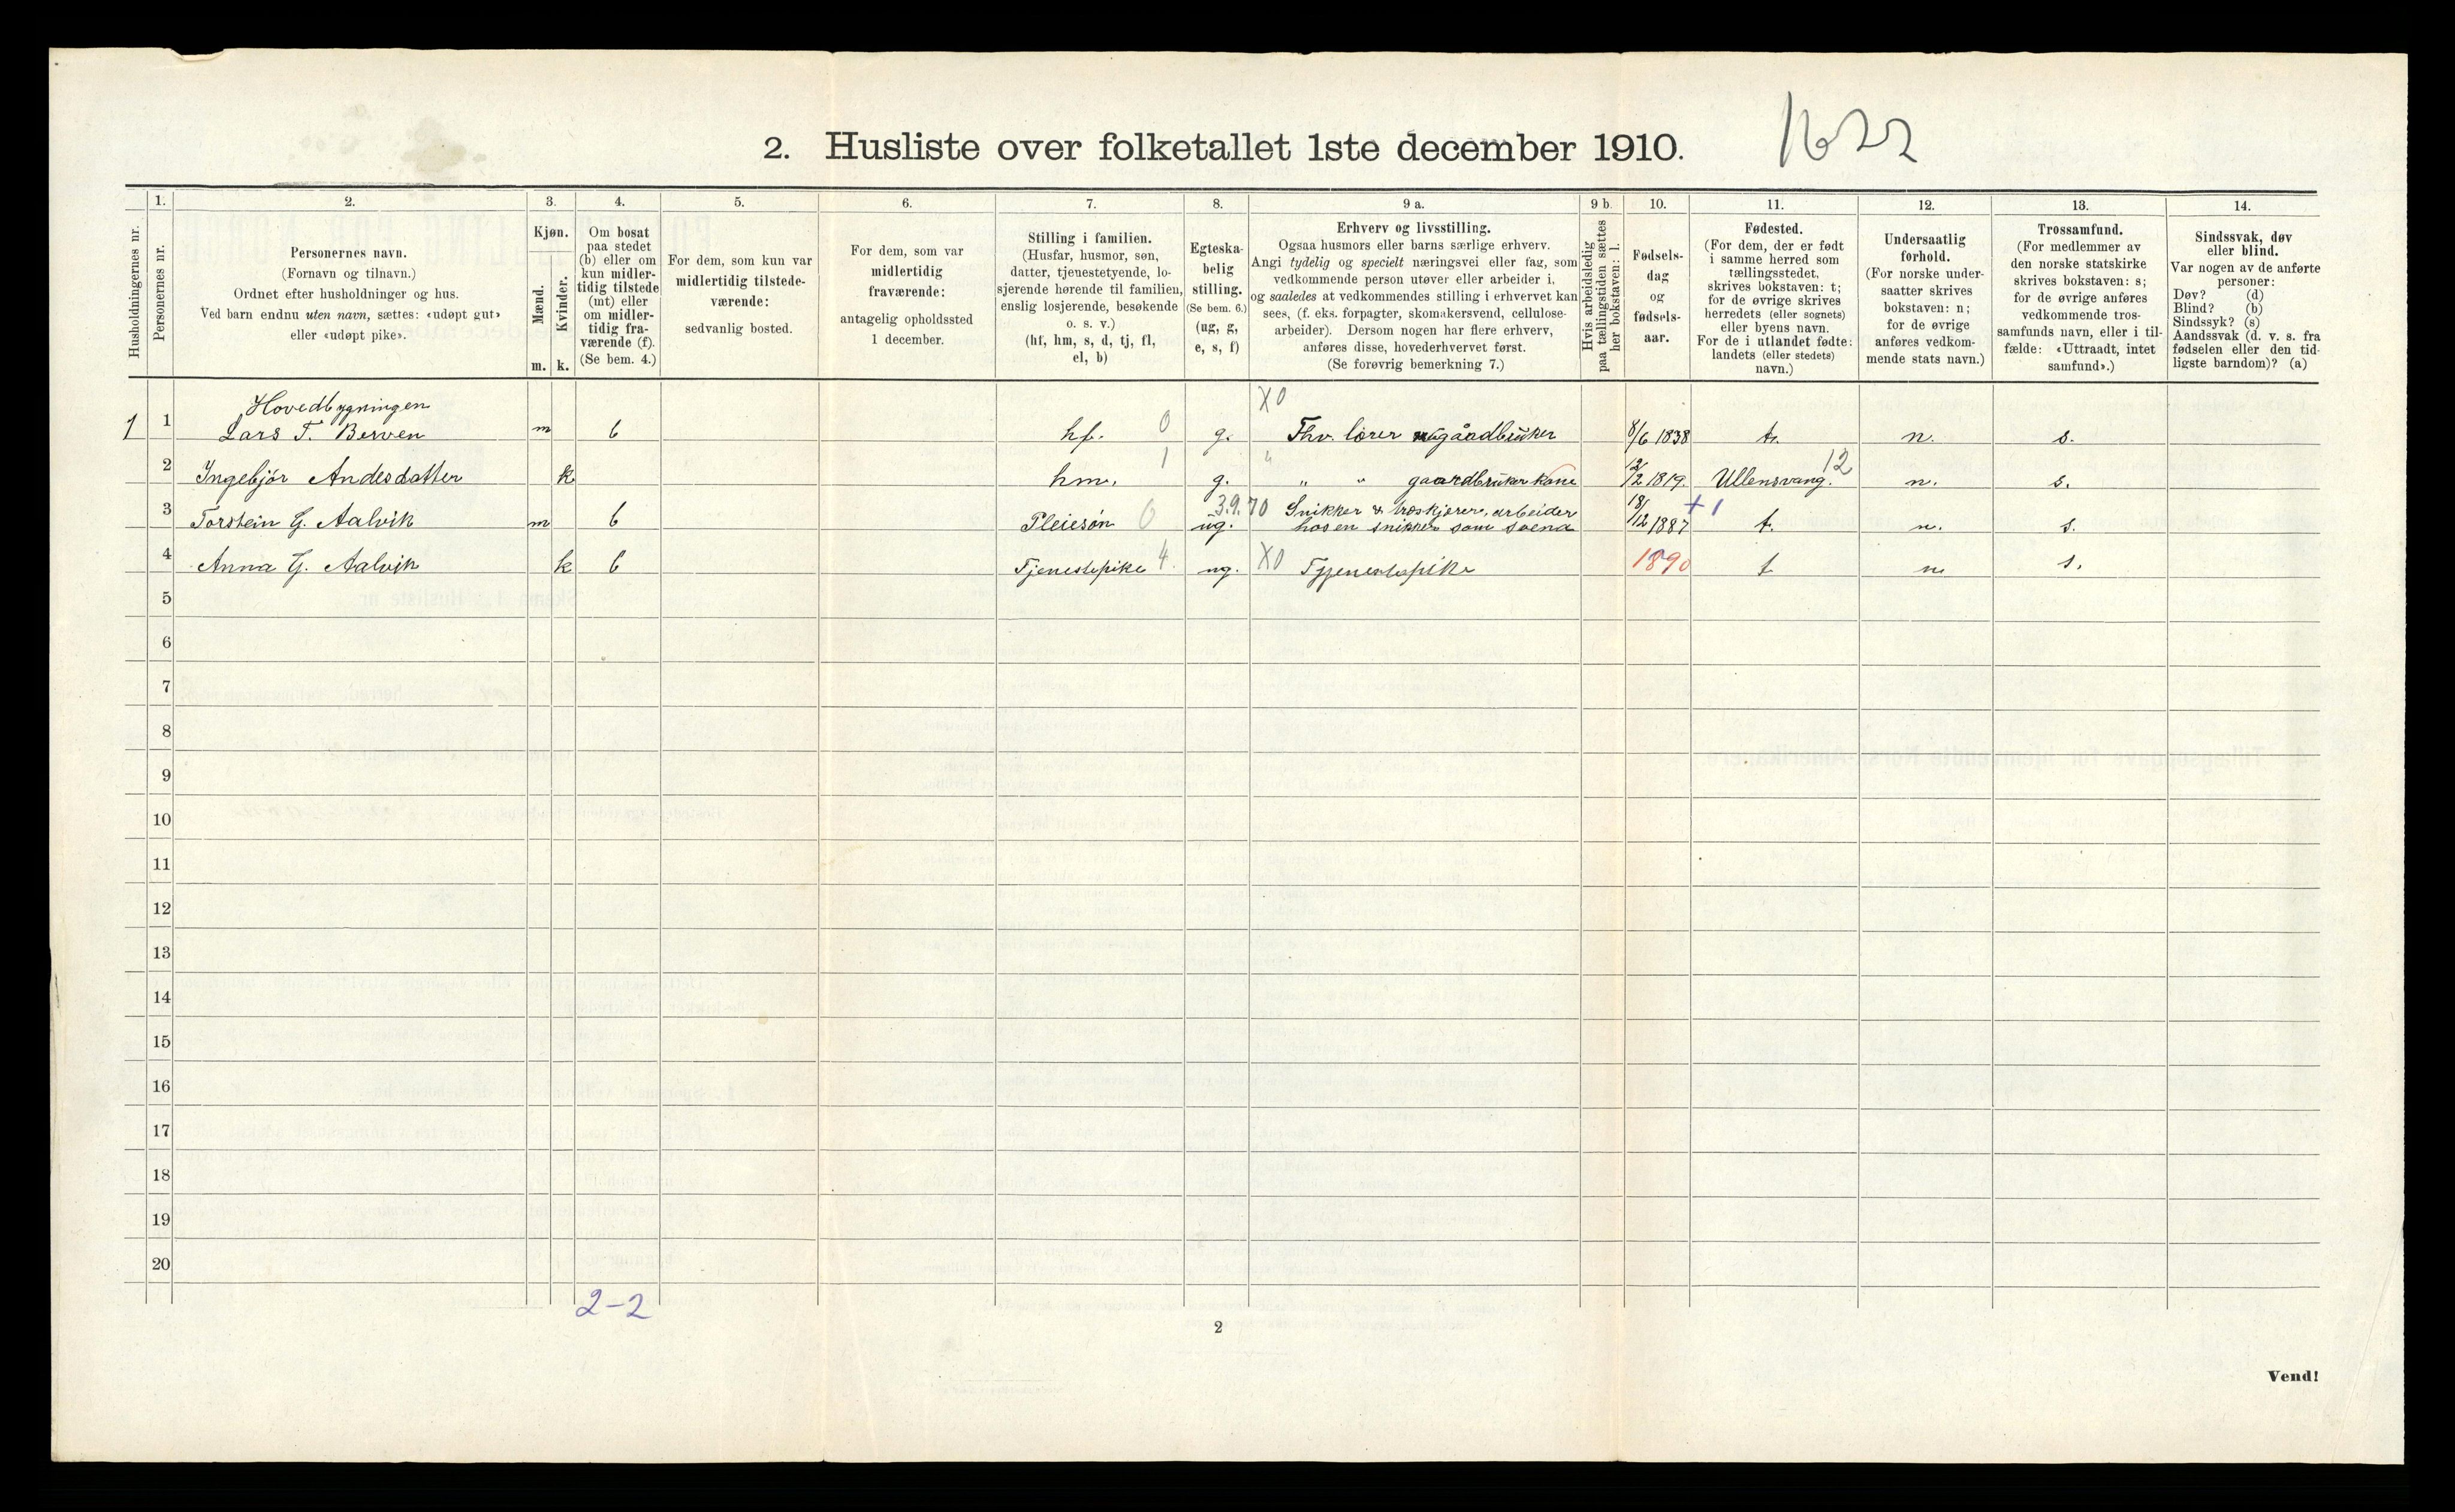 2. Husliste over folketallet 1ste december 1910.
1622
Husholdningernes nr.
1.
Personernes nr.
2.
Personernes navn.
(Fornavn og tilnavn.)
Ordnet efter husholdninger og hus.
Ved barn endnu uten navn, sættes: «udøpt gut»
eller «udøpt pike».
3.
Kjøn.
Mænd.
Kvinder.
m. k.
4.
Om bosat
paa stedet
(b) eller om
kun midler-
tidig tilstede
(mt) eller
om midler-
tidig fra-
værende (f).
(Se bem. 4.)
5.
For dem, som kun var
midlertidig tilstede-
værende:
sedvanlig bosted.
6.
For dem, som var
midlertidig
fraværende:
antagelig opholdssted
1 december.
7.
Stilling i familien.
(Husfar, husmor, søn,
datter, tjenestetyende, lo-
sjerende hørende til familien,
enslig losjerende, besøkende
o. s. v.)
(hf, hm, s, d, tj, fl,
el, b)
8.
Egteska-
belig
stilling.
(Se bem. 6.)
(ug, g,
e, s, f)
9 a.
Erhverv og livsstilling.
Ogsaa husmors eller barns særlige erhverv.
Angi tydelig og specielt næringsvei eller fag, som
vedkommende person utøver eller arbeider i,
og saaledes at vedkommendes stilling i erhvervet kan
sees, (f. eks. forpagter, skomakersvend, cellulose-
arbeider). Dersom nogen har flere erhverv,
anføres disse, hovederhvervet først.
(Se forøvrig bemerkning 7.)
9 b.
Hvis arbeidsledig
paa tællingstiden sættes
her bokstaven: l.
10.
Fødsels-
dag
og
fødsels-
aar.
11.
Fødested.
(For dem, der er født
i samme herred som
tællingsstedet,
skrives bokstaven: t;
for de øvrige skrives
herredets (eller sognets)
eller byens navn.
For de i utlandet fødte:
landets (eller stedets)
navn.)
12.
Undersaatlig
forhold.
(For norske under-
saatter skrives
bokstaven: n;
for de øvrige
anføres vedkom-
mende stats navn.)
13.
Trossamfund.
(For medlemmer av
den norske statskirke
skrives bokstaven: s;
for de øvrige anføres
vedkommende tros-
samfunds navn, eller i til-
fælde: «Uttraadt, intet
samfund».)
14.
Sindssvak, døv
eller blind.
Var nogen av de anførte
personer:
Døv? (d)
Blind? (b)
Sindssyk? (s)
Aandssvak (d. v. s. fra
fødselen eller den tid-
ligste barndom)? (a)
Hovedbygningen X0
1 1 Lars T. Berven m b hf. 0 g. Fhv. lærer gåardbruker 8/6 1838 t. n. s.
2 Ingebjør Andesdatter k hm. 1 g. " " gaardbruker kone 12/2 1819. Ullensvang. 12 n. s.
3 Torstein G. Aalvik m b Pleiesøn 0 ug. 3.9.70 Snikker & træskjærer, arbeider
hos en snikker som svend 18/12 1887 +1 t. n. s.
4 Anna G. Aalvik k b Tjenestepike 4. ug. X0 Tjenestepike 1890 t n. s.
5
6
7
8
9
10
11
12
13
14
15
16
17
18
19
20
2-2
2
Vend!